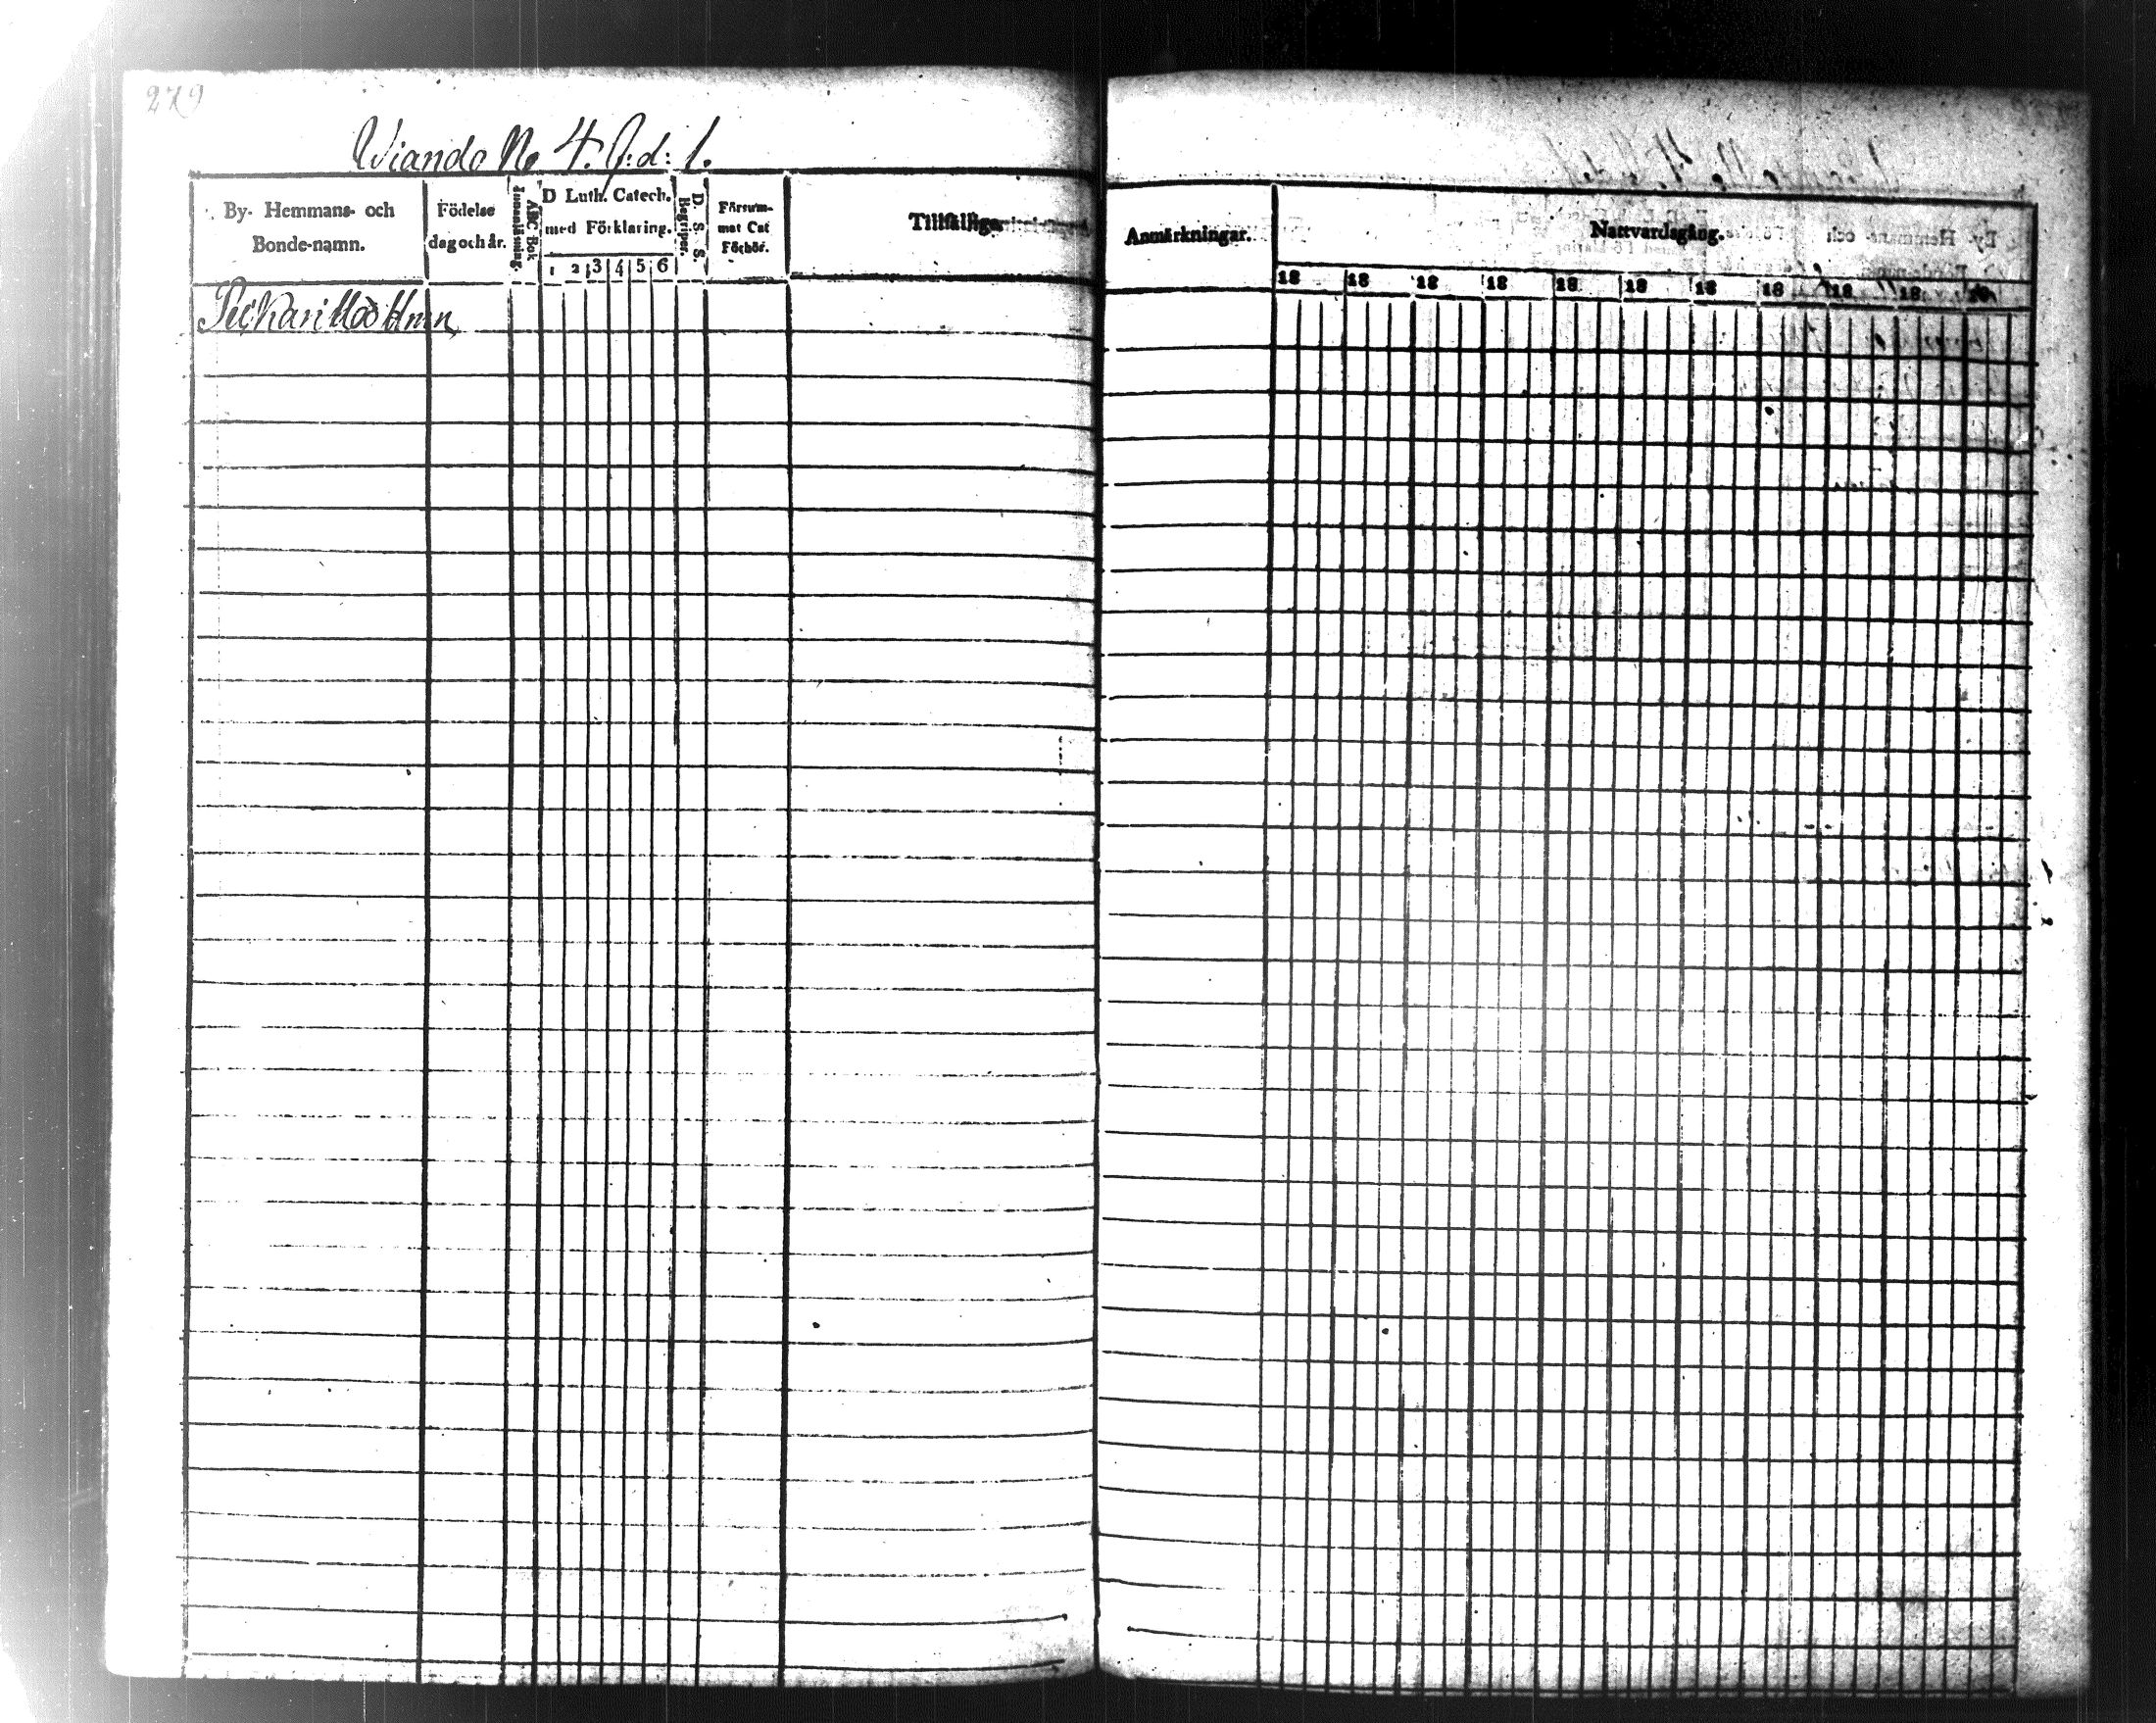 279
Wiando No 4. J:d: 1.
By- Hemmans- och Bonde-namn.
Födelse dag och år.
ABC Bok Innanläsning.
D Luth. Catech. med Förklaring.
1 2 3 4 5 6
Begriper.
D. S. S.
Försummat Cat Förhör.
Tillfälliga
Anmärkningar.
Nattvardsgång.
18 18 18 18 18 18 18 18 18 18 18